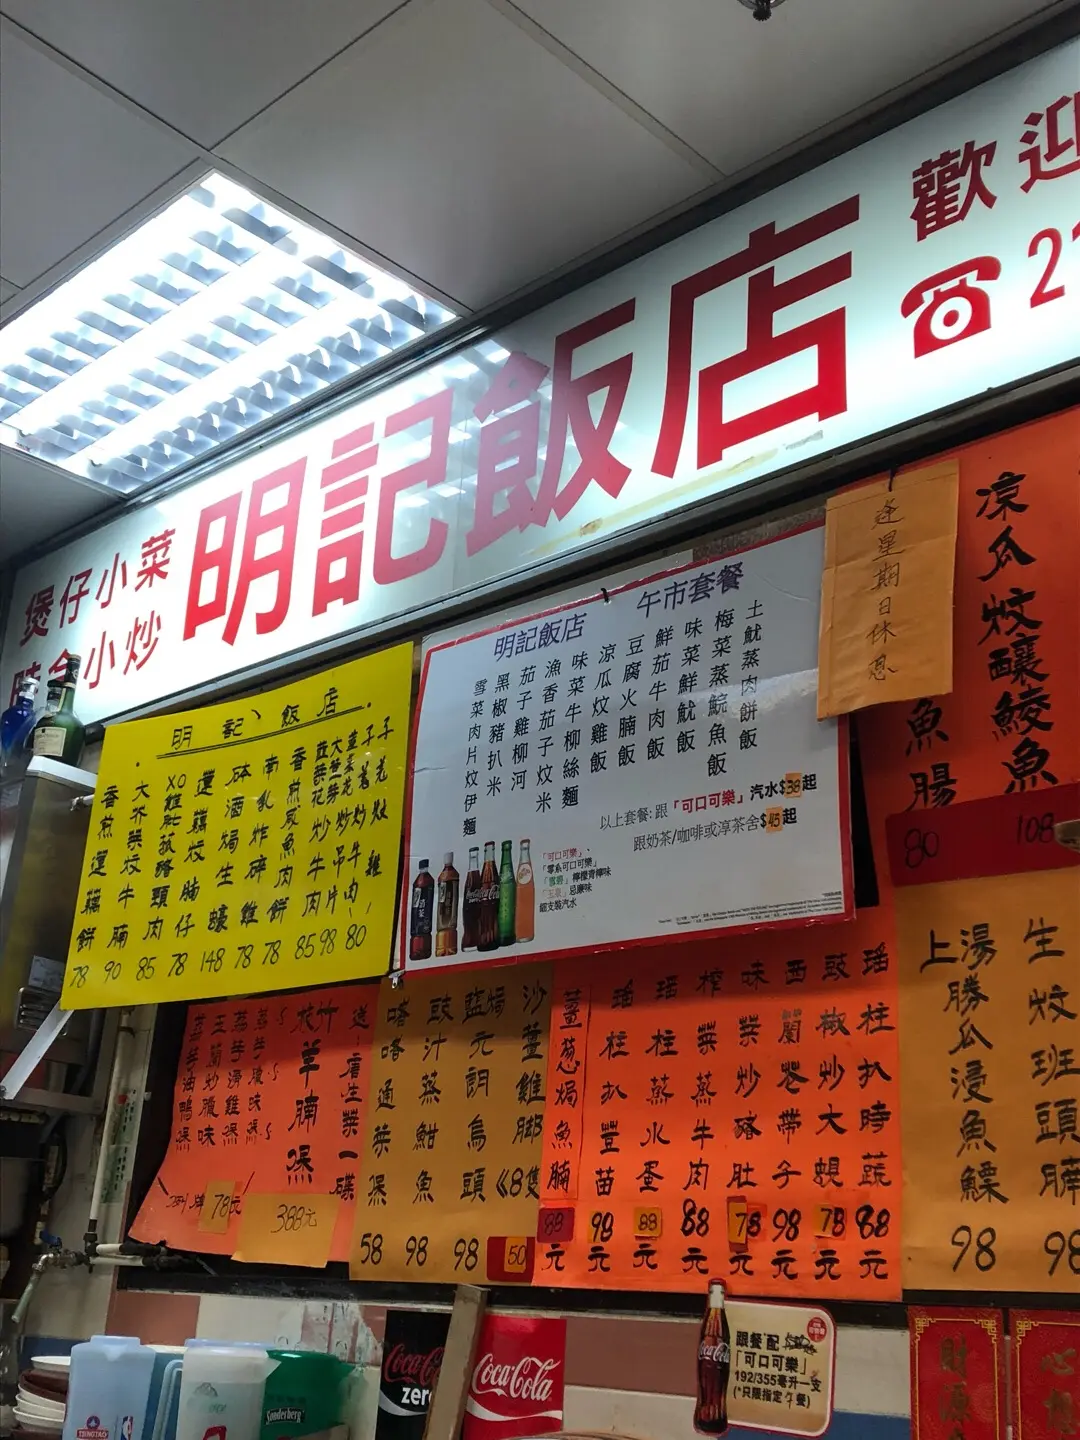 歡迎
煲仔小菜
小炒
明記飯店
☎2
明記飯店
香煎蓮藕餅 78
大芥菜炆牛腩 90
XO 頸肉 85
蓮藕炆腩仔 78
砵酒焗生蠔 148
南乳炸碎雞 78
香煎咸魚肉餅 78
炒牛肉 85
98
80
明記飯店 午市套餐
土魷蒸肉餅飯
梅菜蒸鯇魚飯
味菜鮮魷飯
鮮茄牛肉飯
豆腐火腩飯
涼瓜炆雞飯
味菜牛柳絲麵
漁香茄子炆米
茄子雞柳河
黑椒豬扒米
雪菜肉片炆伊麵
以上套餐: 跟「可口可樂」汽水$38起
跟奶茶/咖啡或淳茶舍$45起
「可口可樂」、
「零系可口可樂」
「雪碧」檸檬青檸味
「玉泉」忌廉味
細支裝汽水
逢星期日休息
涼瓜炆釀鯪魚 108
魚腸 80
竹枝羊腩煲 388元
道:唐生菜一碟
78元
瑤柱扒時蔬 88元
豉椒炒大蜆 78元
西蘭卷帶子 98元
味菜炒豬肚 78元
榨菜蒸牛肉 88元
瑤柱蒸水蛋 88元
瑤柱扒豆苗 98元
薑蔥焗魚腩 88元
沙薑雞腳《8隻 50
鹽焗元朗烏頭 98
豉汁蒸魽魚 98
啫啫通菜煲 58
生炆班頭腩 98
上湯勝瓜浸魚鰾 98
Coca-Cola
zero
Coca-Cola
跟餐配
「可口可樂」
192/355毫升一支
(*只限指定午餐)
TSINGTAO
Sonderberg
財源
心想